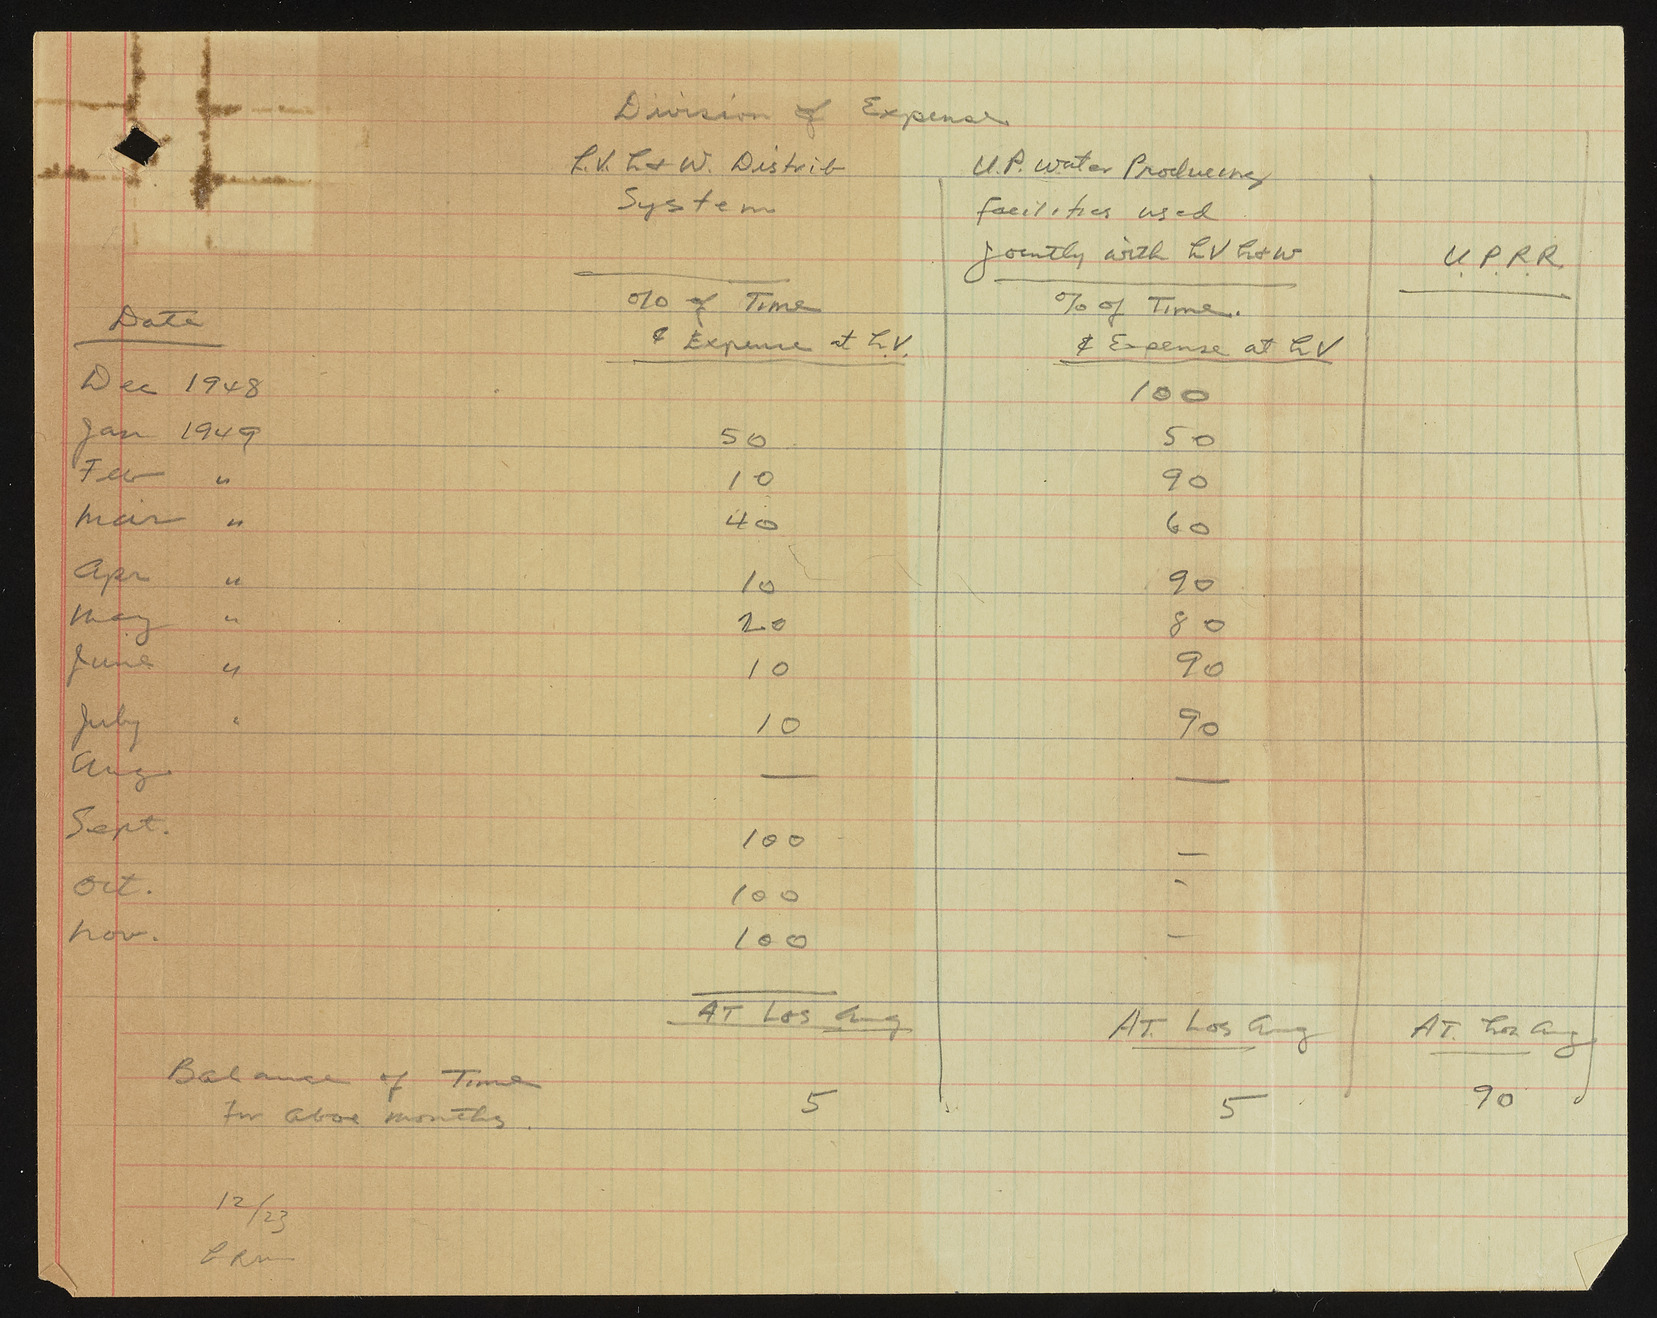 Division of Expense
L.V. L+W. Distrib
System
U.P. Water Producing
facilities used
jointly with LV L+W
U.P.R.R.
Date
% of Time
& Expense at L.V.
% of Time.
& Expense at LV
Dec 1948 100
Jan 1949 50 50
Feb " 10 90
Mar " 40 60
Apr " 10 90
May " 20 80
June " 10 90
July " 10 90
Aug — —
Sept. 100 —
Oct. 100 -
Nov. 100 —
AT Los Ang AT. Los Ang AT. Los Ang
Balance of Time
For above months. 5 5 90
12/23